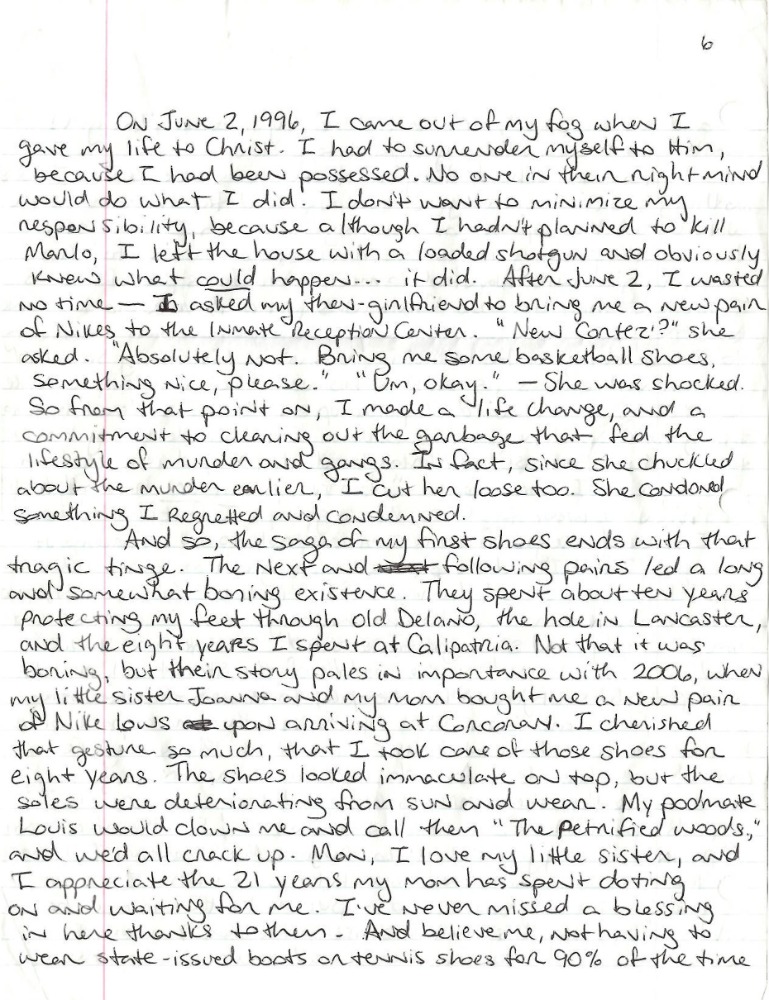 6
On June 2, 1996, I came out of my fog when I
gave my life to Christ. I had to surrender myself to Him,
because I had been possessed. No one in their right mind
would do what I did. I don't want to minimize my
responsibility, because although I hadn't planned to kill
Marlo, I left the house with a loaded shotgun and obviously
knew what could happen... it did. After June 2, I wasted
no time — I asked my then-girlfriend to bring me a new pair
of Nikes to the Inmate Reception Center. "New Cortez'?" she
asked. "Absolutely not. Bring me some basketball shoes,
something nice, please." "Um, okay." — She was shocked.
So from that point on, I made a life change, and a
commitment to cleaning out the garbage that fed the
lifestyle of murder and gangs. In fact, since she chuckled
about the murder earlier, I cut her loose too. She condoned
something I regretted and condemned.
And so, the saga of my first shoes ends with that
tragic tinge. The next and following pairs led a long
and somewhat boring existence. They spent about ten years
protecting my feet through old Delano, the hole in Lancaster,
and the eight years I spent at Calipatria. Not that it was
boring, but their story pales in importance with 2006, when
my little sister Joanna and my mom bought me a new pair
of Nike lows upon arriving at Corcoran. I cherished
that gesture so much, that I took care of those shoes for
eight years. The shoes looked immaculate on top, but the
soles were deteriorating from sun and wear. My podmate
Louis would clown me and call them "The Petrified Woods,"
and we'd all crack up. Man, I love my little sister, and
I appreciate the 21 years my mom has spent doting
on and waiting for me. I've never missed a blessing
in here thanks to them. And believe me, not having to
wear state-issued boots or tennis shoes for 90% of the time